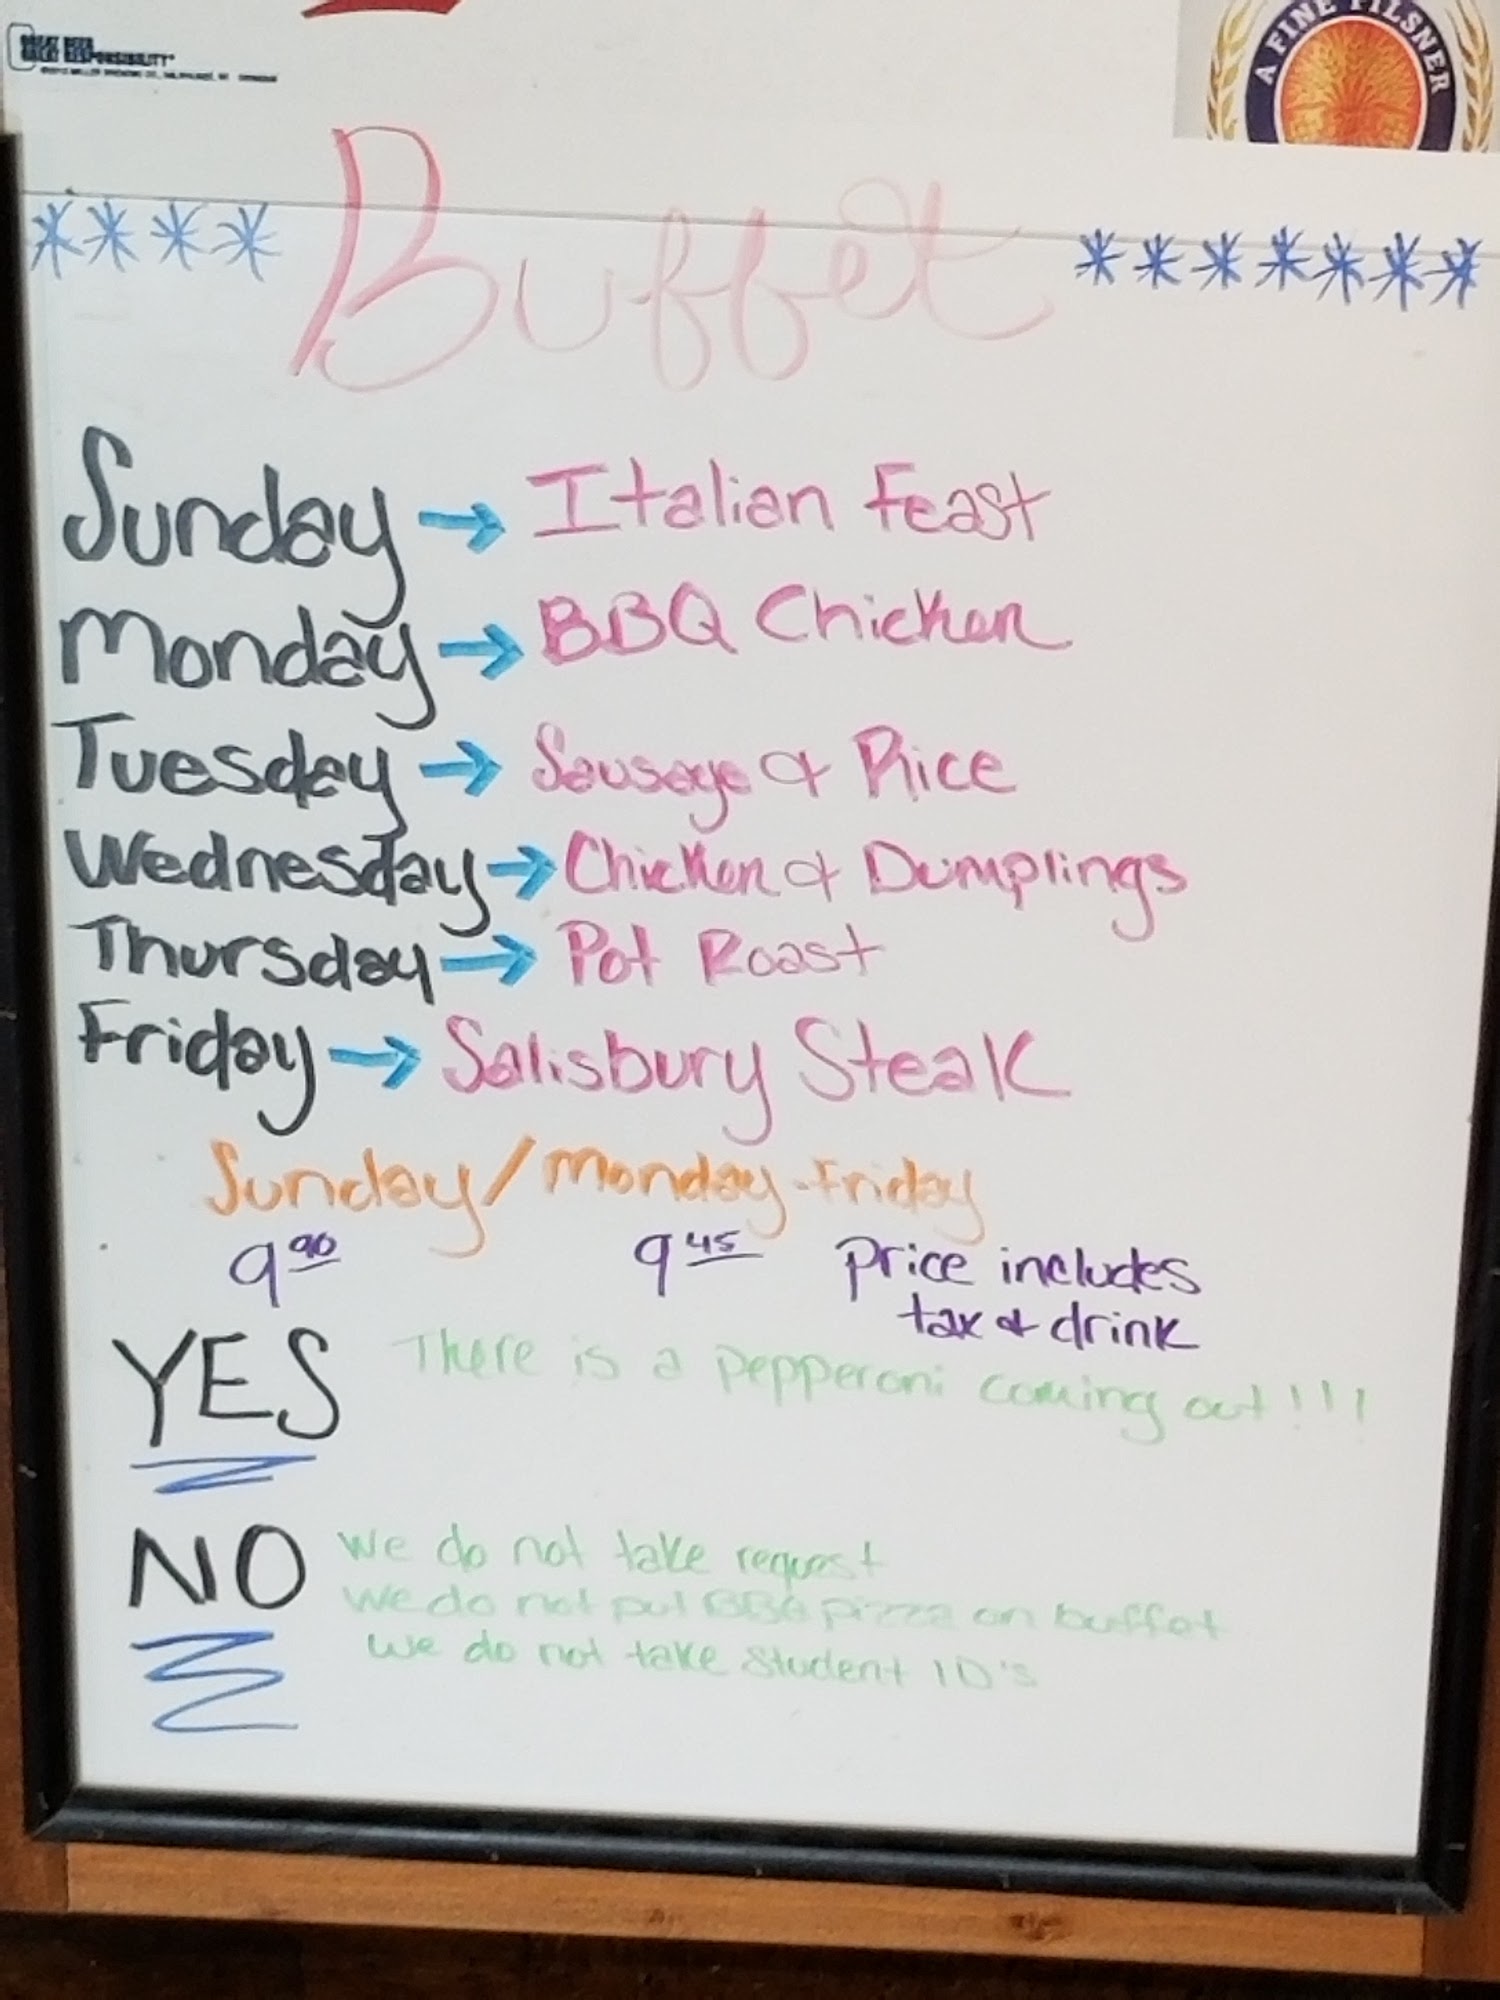 GREAT BEER
GREAT RESPONSIBILITY
A FINE PILSNER
**** Buffet *******
Sunday → Italian Feast
Monday → BBQ Chicken
Tuesday → Sausage & Rice
Wednesday → Chicken & Dumplings
Thursday → Pot Roast
Friday → Salisbury Steak
Sunday/Monday-Friday
9 90 9 45 price includes
tax & drink
YES There is a pepperoni coming out!!!
NO We do not take request
We do not put BBQ pizza on buffet
We do not take Student ID's